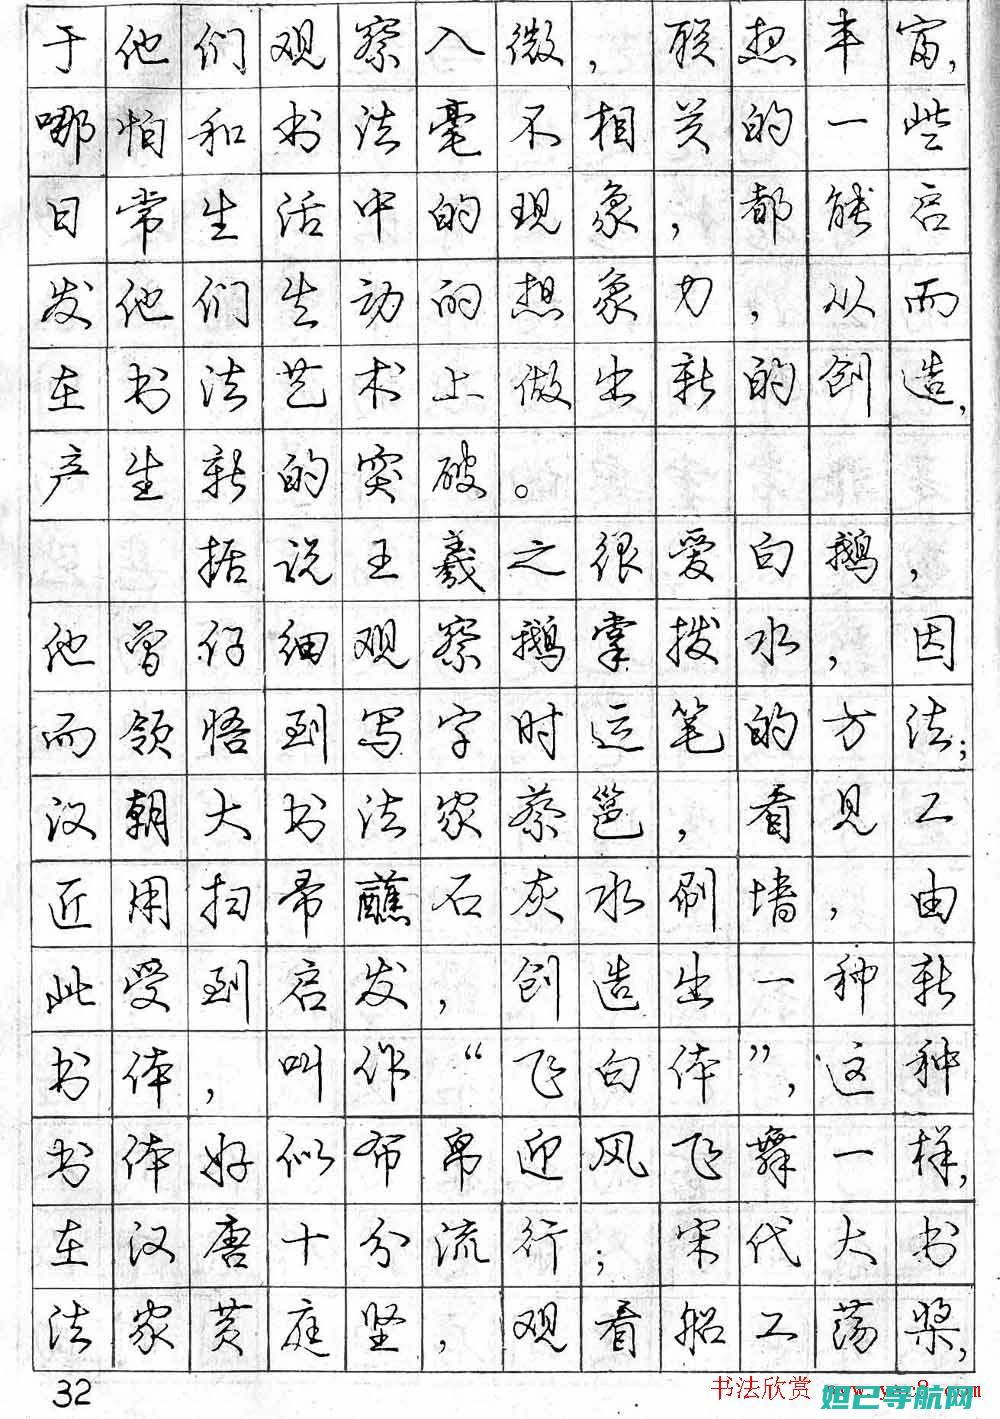 于他们观察入微，联想丰富，
哪怕和书法毫不相关的一些
日常生活中的现象，都能启
发他们生动的想象力，从而
在书法艺术上做出新的创造，
产生新的突破。
据说王羲之很爱白鹅，
他曾仔细观察鹅掌拨水，因
而领悟到写字时运笔的方法；
汉朝大书法家蔡邕，看见工
匠用扫帚蘸石灰水刷墙，由
此受到启发，创造出一种新
书体，叫作“飞白体”，这种
书体好似布帛迎风飞舞一样，
在汉唐十分流行；宋代大书
法家黄庭坚，观看船工荡桨，
32
书法欣赏
妲己导航网